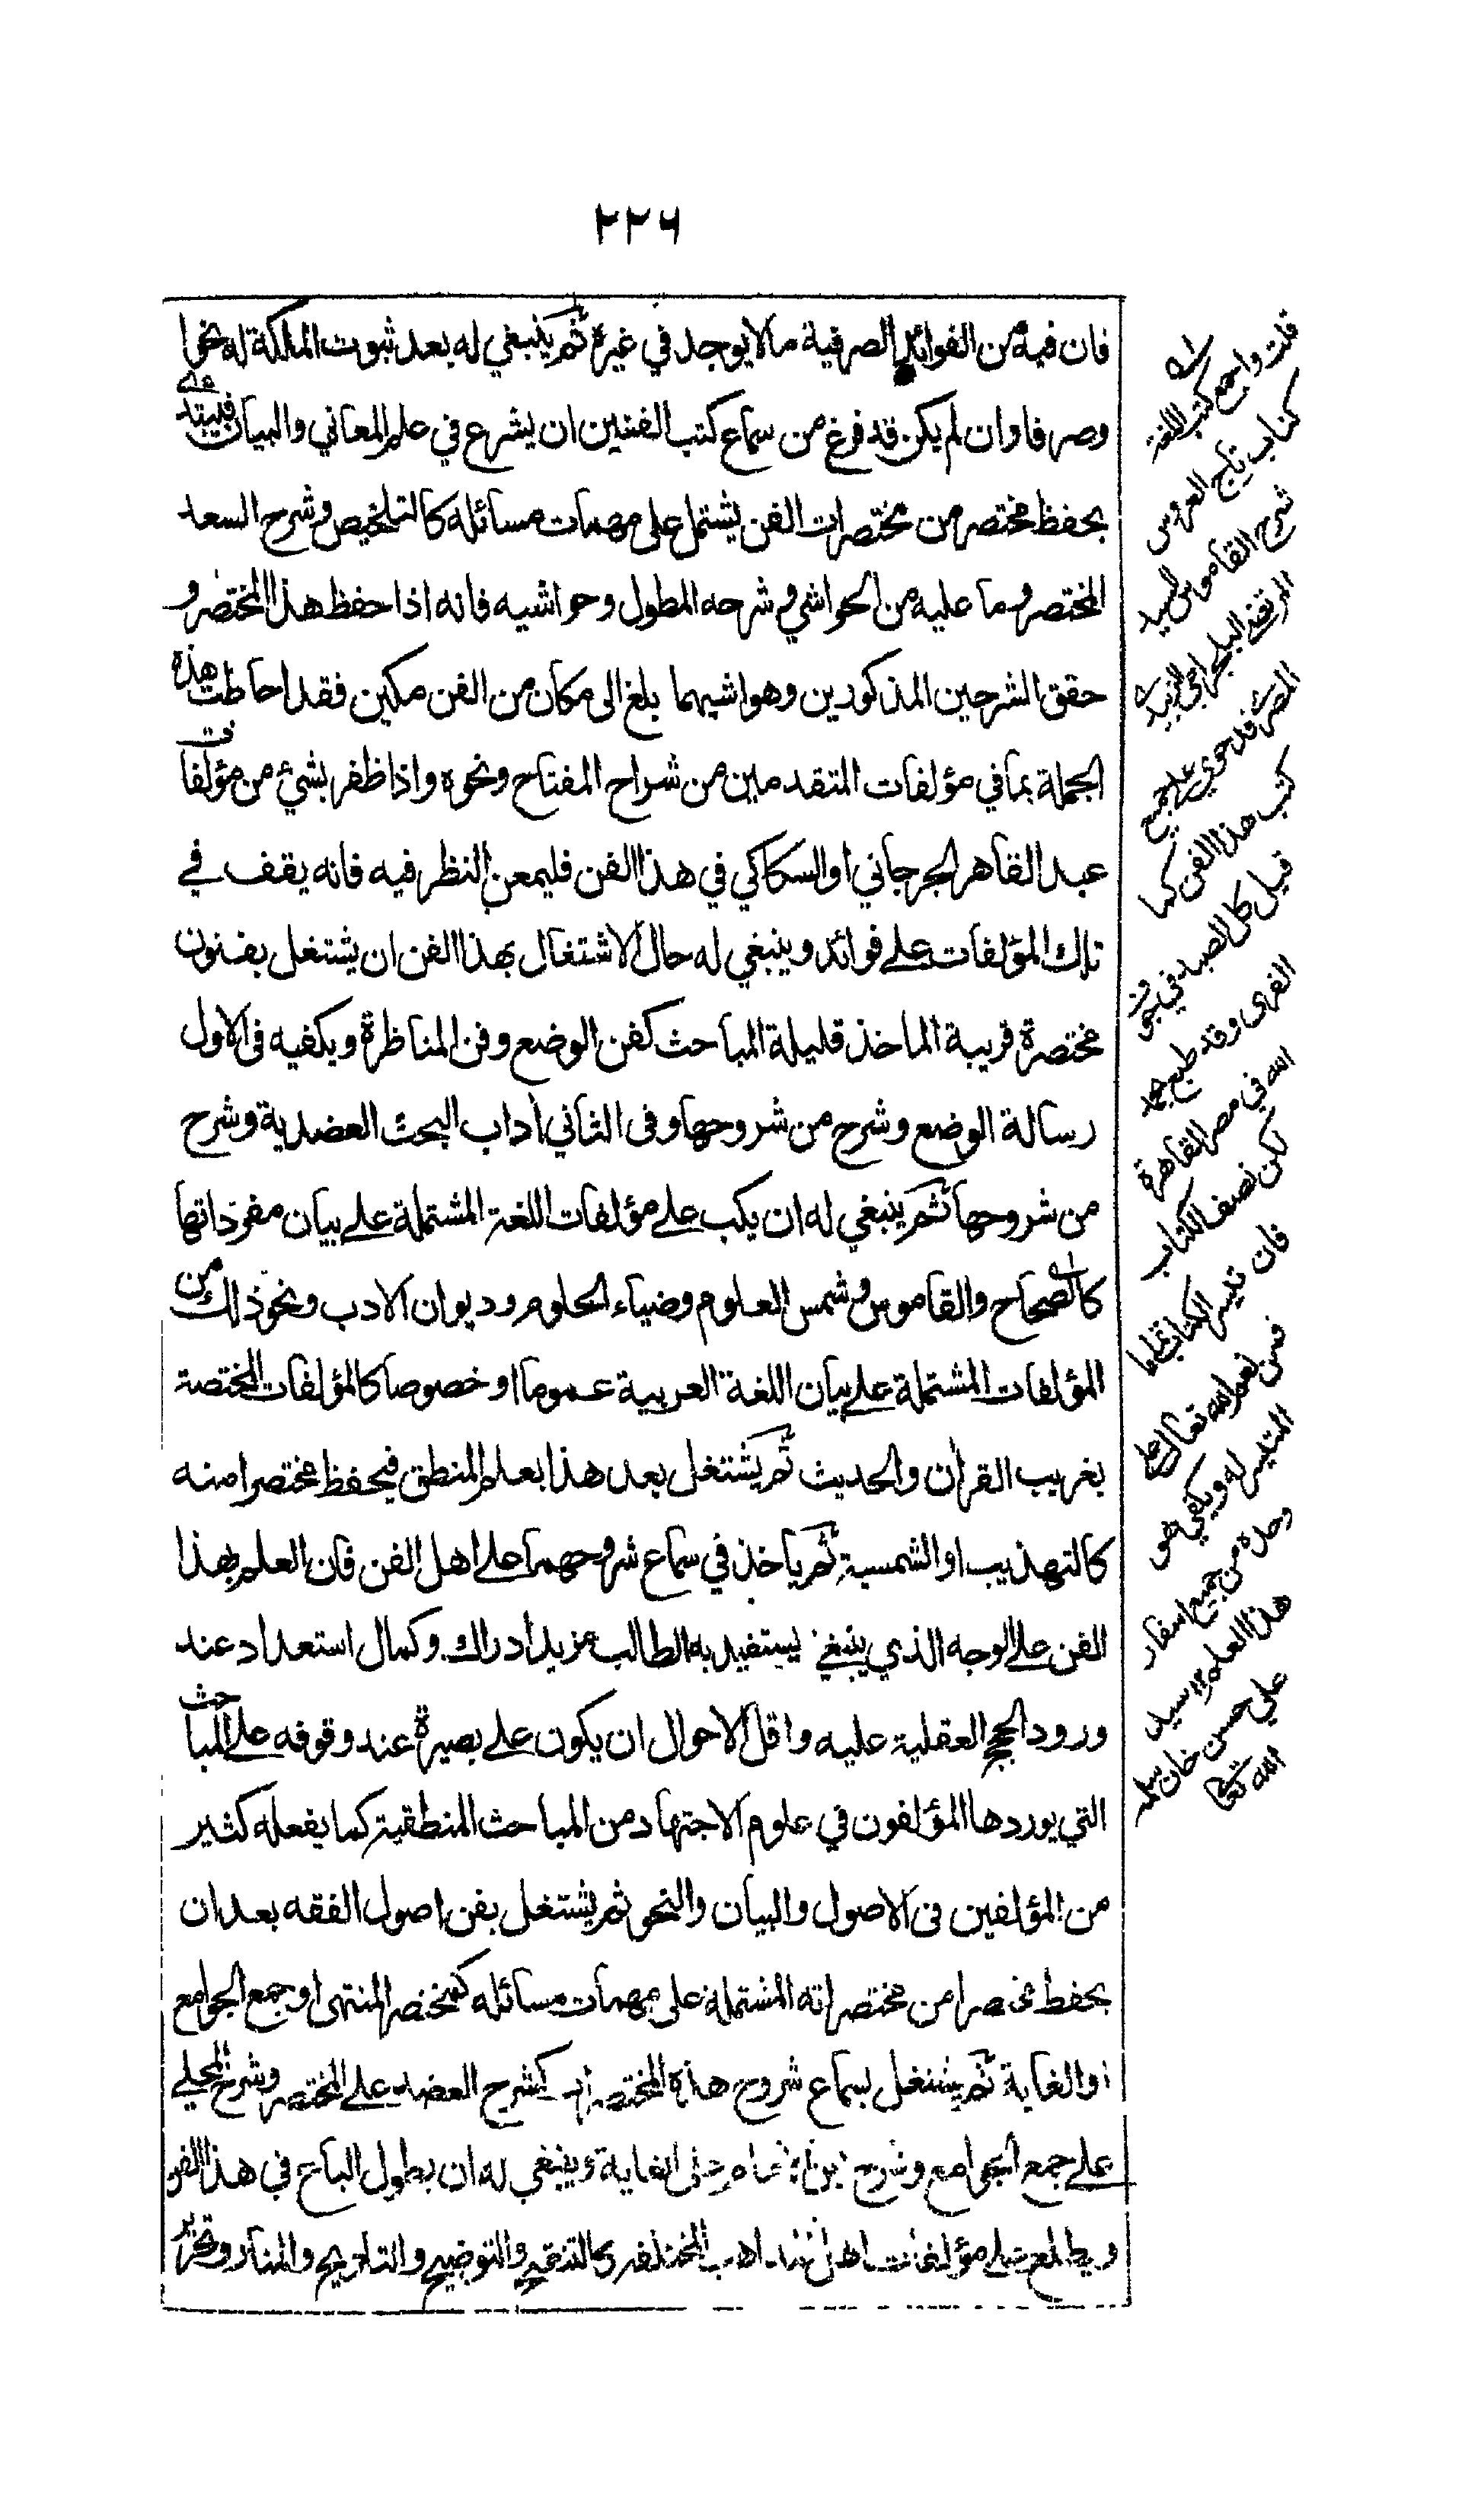 ٢٢٦
فان فيه من الفوائد الصرفية مالا يوجد في غيره ثم ينبغي له بعد ثبوت الملكة له نحوا
وصرفا وان لم يكن قد فرغ من سماع كتب الفنين ان يشرع في علم المعاني والبيان فليبتدء
بحفظ مختصر من مختصرات الفن يشتمل على مهمات مسائله كالتلخيص وشرح السعد
المختصر وما عليه من الحواشي وشرحه المطول وحواشيه فانه اذا حفظ هذا المختصر و
حقق الشرحين المذكورين وهواشيهما بلغ الى مكان من الفن مكين فقد احاطت هذه
الجملة بما في مؤلفات المتقدمين من شراح المفتاح ونحوه واذا ظفر بشئ من مؤلفات
عبد القاهر الجرجاني او السكاكي في هذا الفن فليمعن النظر فيه فانه يقف في
تلك المؤلفات على فوائد وينبغي له حال الاشتغال بهذا الفن ان يشتغل بفنون
مختصرة قريبة الماخذ قليلة المباحث كفن الوضع وفن المناظرة ويكفيه فى الاول
رسالة الوضع وشرح من شروحها وفى الثاني اداب البحث العضدية وشرح
من شروحها ثم ينبغي له ان يكب على مؤلفات اللغة المشتملة على بيان مفرداتها
كالصحاح والقاموس وشمس العلوم وضياء الحلوم وديوان الادب ونحو ذلك من
المؤلفات المشتملة على بيان اللغة العربية عموما او خصوصا كالمؤلفات المختصة
بغريب القرأن والحديث ثم يشتغل بعد هذا بعلم المنطق فيحفظ مختصرا منه
كالتهذيب او الشمسية ثم ياخذ في سماع شروحهما على اهل الفن فان العلم بهذا
الفن على الوجه الذي ينبغي يستفيد به الطالب مزيد ادراك وكمال استعداد عند
ورود الحجج العقلية عليه واقل الاحوال ان يكون على بصيرة عند وقوفه على المباحث
التي يوردها المؤلفون في علوم الاجتهاد من المباحث المنطقية كما يفعله كثير
من المؤلفين فى الاصول والبيان والنحو ثم يشتغل بفن اصول الفقه بعد ان
يحفظ مختصرا من مختصراته المشتملة على مهمات مسائله كمختصر المنتهى او جمع الجوامع
او الغاية ثم يشتغل بسماع شروح هذه المختصرات كشرح العضد على المختصر وشرح المحلي
على جمع الجوامع وشرح ابن الامام على الغاية وينبغي له ان يطول الباع في هذا الفن
ويطلع على مؤلفات اهل المذاهب المختلفة كالتنقيح والتوضيح والتلويح والمنار وتحرير
قلت واجمع كتب اللغة
كتاب تاج العروس
شرح القاموس للسيد
المرتضى البلجرامي الزبيدي
المصري قد حوى على جميع
كتب هذا الفن كما
قيل كل الصيد في جوف
الفرى وقد طبع بحمد
الله في مصر القاهرة
لكن نصف الكتاب
فان تيسر الكتاب بتمامه
فمن نعم الله تعالى على
المتيسر له ويكفي هو
وحده من جميع اسفار
هذا العلم سيد
علي حسن خان سلمه
الله تعالى